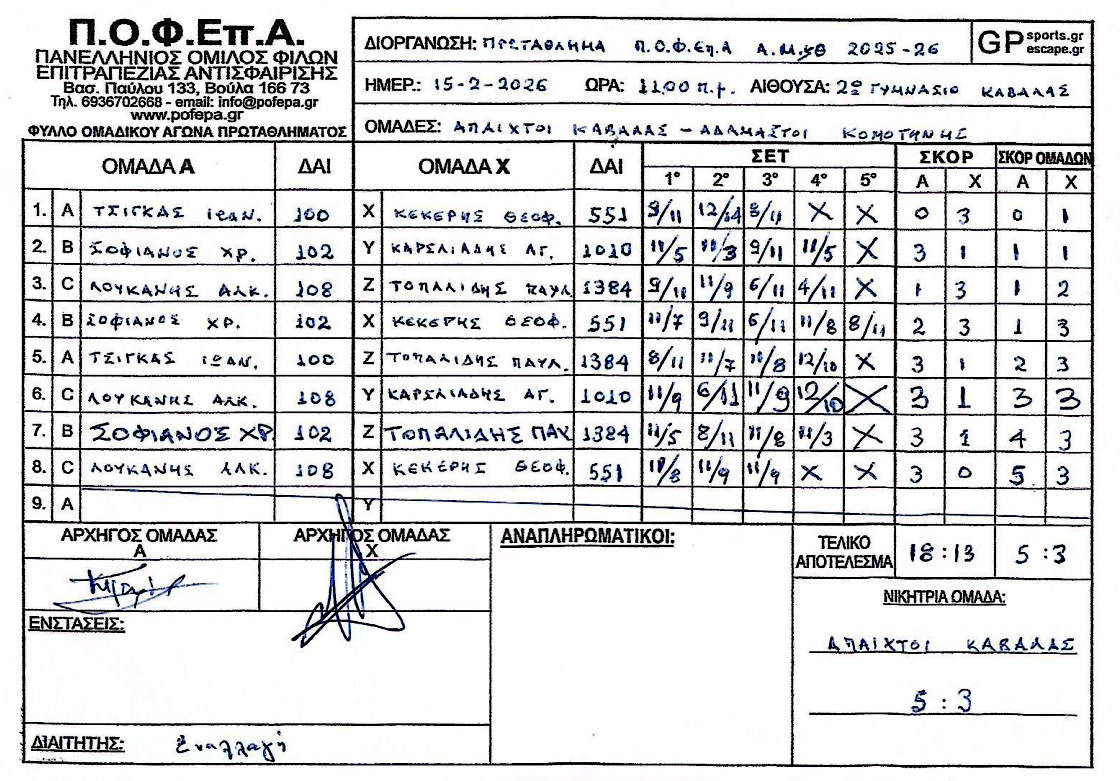 Π.Ο.Φ.Επ.Α.
ΠΑΝΕΛΛΗΝΙΟΣ ΟΜΙΛΟΣ ΦΙΛΩΝ
ΕΠΙΤΡΑΠΕΖΙΑΣ ΑΝΤΙΣΦΑΙΡΙΣΗΣ
Βασ. Παύλου 133, Βούλα 166 73
Τηλ. 6936702668 - email: info@pofepa.gr
www.pofepa.gr
ΦΥΛΛΟ ΟΜΑΔΙΚΟΥ ΑΓΩΝΑ ΠΡΩΤΑΘΛΗΜΑΤΟΣ
ΔΙΟΡΓΑΝΩΣΗ: ΠΡΩΤΑΘΛΗΜΑ Π.Ο.Φ.Επ.Α Α.Μ.&Θ 2025-26
GP sports.gr
escape.gr
ΗΜΕΡ.: 15-2-2026 ΩΡΑ: 1100 π.μ. ΑΙΘΟΥΣΑ: 2ο ΓΥΜΝΑΣΙΟ ΚΑΒΑΛΑΣ
ΟΜΑΔΕΣ: ΑΠΑΙΧΤΟΙ ΚΑΒΑΛΑΣ - ΑΔΑΜΑΣΤΟΙ ΚΟΜΟΤΗΝΗΣ
ΟΜΑΔΑ Α ΔΑΙ ΟΜΑΔΑ Χ ΔΑΙ ΣΕΤ ΣΚΟΡ ΣΚΟΡ ΟΜΑΔΩΝ
1° 2° 3° 4° 5° Α Χ Α Χ
1. Α ΤΣΙΓΚΑΣ ΙΩΑΝ. 100 Χ ΚΕΚΕΡΗΣ ΘΕΟΦ. 551 9/11 12/14 8/11 X X 0 3 0 1
2. Β ΣΟΦΙΑΝΟΣ ΧΡ. 102 Υ ΚΑΡΣΛΙΑΔΗΣ ΑΓ. 1010 11/5 11/3 9/11 11/5 X 3 1 1 1
3. C ΛΟΥΚΑΝΗΣ ΑΛΚ. 108 Ζ ΤΟΠΑΛΙΔΗΣ ΠΑΥΛ 1384 9/11 11/9 6/11 4/11 X 1 3 1 2
4. Β ΣΟΦΙΑΝΟΣ ΧΡ. 102 Χ ΚΕΚΕΡΗΣ ΘΕΟΦ. 551 11/7 9/11 6/11 11/8 8/11 2 3 1 3
5. Α ΤΣΙΓΚΑΣ ΙΩΑΝ. 100 Ζ ΤΟΠΑΛΙΔΗΣ ΠΑΥΛ. 1384 8/11 11/7 11/8 12/10 X 3 1 2 3
6. C ΛΟΥΚΑΝΗΣ ΑΛΚ. 108 Υ ΚΑΡΣΛΙΑΔΗΣ ΑΓ. 1010 11/9 6/11 11/9 12/10 X 3 1 3 3
7. Β ΣΟΦΙΑΝΟΣ ΧΡ 102 Ζ ΤΟΠΑΛΙΔΗΣ ΠΑΥ 1384 11/5 8/11 11/8 11/3 X 3 1 4 3
8. C ΛΟΥΚΑΝΗΣ ΑΛΚ. 108 Χ ΚΕΚΕΡΗΣ ΘΕΟΦ. 551 11/8 11/9 11/9 X X 3 0 5 3
9. Α Υ
ΑΡΧΗΓΟΣ ΟΜΑΔΑΣ Α ΑΡΧΗΓΟΣ ΟΜΑΔΑΣ Χ
ΑΝΑΠΛΗΡΩΜΑΤΙΚΟΙ:
ΤΕΛΙΚΟ ΑΠΟΤΕΛΕΣΜΑ 18:13 5:3
ΝΙΚΗΤΡΙΑ ΟΜΑΔΑ:
ΑΠΑΙΧΤΟΙ ΚΑΒΑΛΑΣ
5:3
ΕΝΣΤΑΣΕΙΣ:
ΔΙΑΙΤΗΤΗΣ: Εναλλαγή